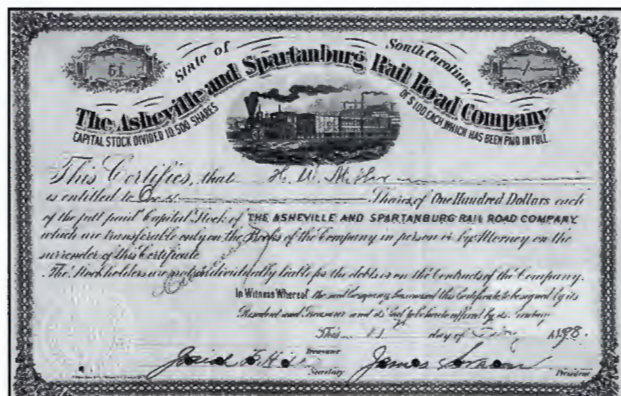 51
State of South Carolina.
The Asheville and Spartanburg Rail Road Company
CAPITAL STOCK DIVIDED 10,500 SHARES OF $100 EACH WHICH HAS BEEN PAID IN FULL.
This Certifies, that H. W. Miller
is entitled to One Shares of One Hundred Dollars each
of the full paid Capital Stock of THE ASHEVILLE AND SPARTANBURG RAIL ROAD COMPANY
which are transferable only on the Books of the Company in person or by Attorney on the
surrender of this Certificate
The Stockholders are not individually liable for the debts or on the Contracts of the Company.
In Witness Whereof the said Company has caused this Certificate to be signed by its
President and Treasurer and its Seal to be hereto affixed by its Secretary
This 11 day of A. 189
Treasurer
Josiah F. Hill James
Secretary President